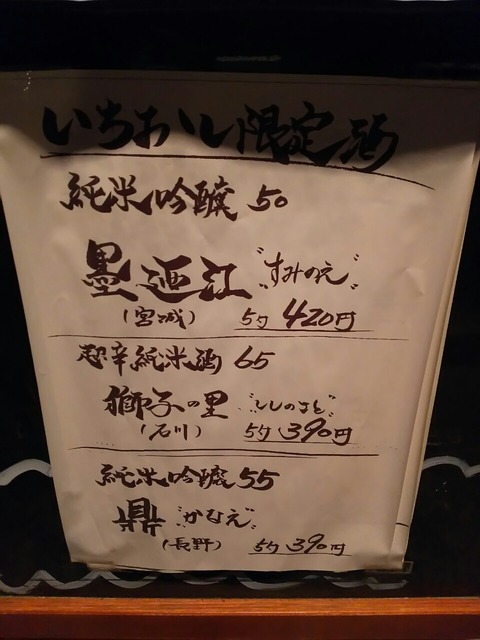 いちおし限定酒
純米吟醸 50
墨廼江 "すみのえ"
(宮城) 5勺 420円
超辛純米酒 65
獅子の里 "ししのさと"
(石川) 5勺 390円
純米吟醸 55
鼎 "かなえ"
(長野) 5勺 390円